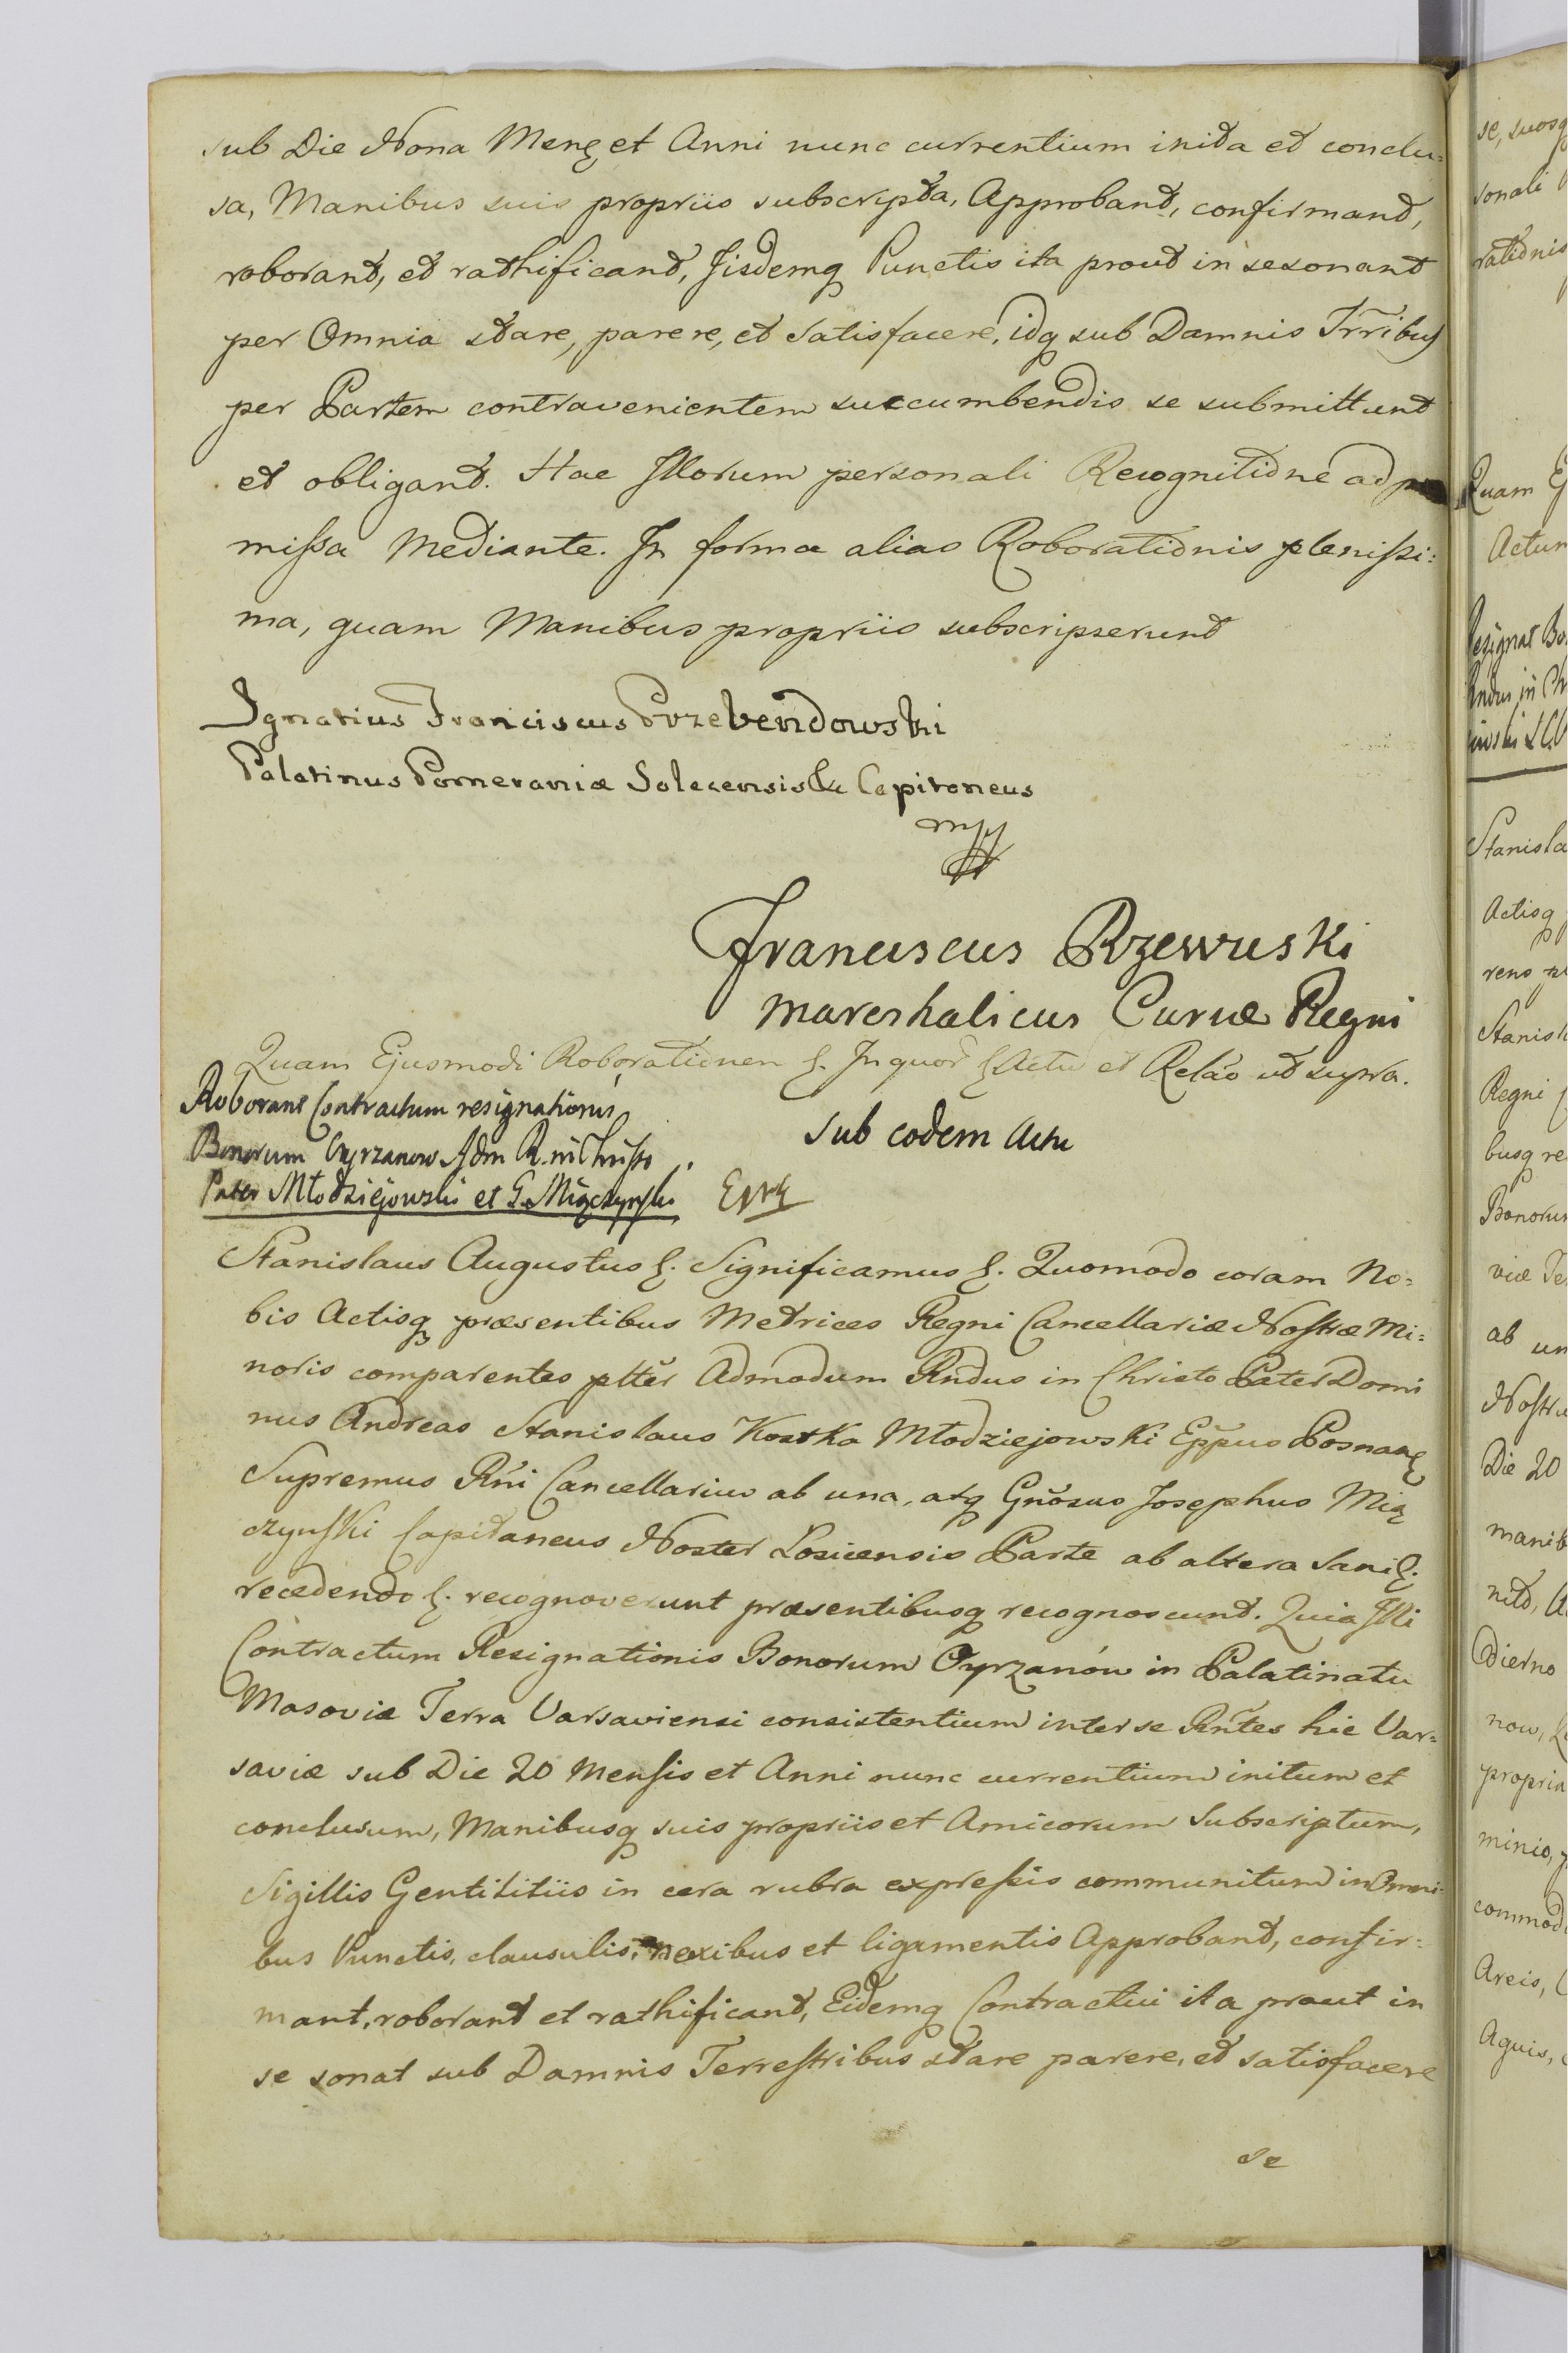 sub Die Nona Mens, et Anni nunc currentium inita et conclu=
sa, Manibus suis propriis subscripta, Approbant, confirmant,
roborant, et rathificant, Jisdemq Punctis ita prout in se sonant
per Omnia stare, parere, et satisfacere, idq sub Damnis Trribus
per Partem contravenientem succumbendis se submittunt
et obligant. Hac Illorum personali Recognitione ad præ
missa Mediante. In forma alias Roborationis plenissi:
ma, quam Manibus propriis subscripserunt
Ignatius Franciscus Przebendowski
Palatinus Pomeraniæ Solecensis &c Capitaneus
mpp
Franciscus Rzewuski
Mareshalicus Curiæ Regni
Quam Ejusmodi Roborationem &. In quor & Actu et Relao ut supra.
Roborant Contractum resignationis
Bonorum Oyrzanow Adm R. in Christo
Pater Młodziejowski et G. Miączyński
Sub eodem Actu
Stanislaus Augustus &. Significamus &. Quomodo coram No=
bis Actisq præsentibus Metrices Regni Cancellariæ Nostræ Mi=
noris comparentes plter Admodum Rndus in Christo Pater Domi
nus Andreas Stanislaus Kostka Młodziejowski Eppus Posnan
Supremus Rni Cancellarius ab una, atq Gnosus Josephus Mią
czynski Capitaneus Noster Losicensis Parte ab altera Sani &.
recedendo &. recognoverunt præsentibusq recognoscunt. Quia Illi
Contractum Resignationis Bonorum Oyrzanów in Palatinatu
Masoviæ Terra Varsaviensi consistentium inter se Rntes hic Var=
saviæ sub Die 20 Mensis et Anni nunc currentium initum et
conclusum, Manibusq suis propriis et Amicorum Subscriptum,
Sigillis Gentilitiis in cera rubra expressis communitum in Omni=
bus Punctis, clausulis, nexibus et ligamentis Approbant, confir=
mant, roborant et rathificant, Eidemq Contractui ita prout in
se sonat sub Damnis Terrestribus stare parere, et satisfacere
se